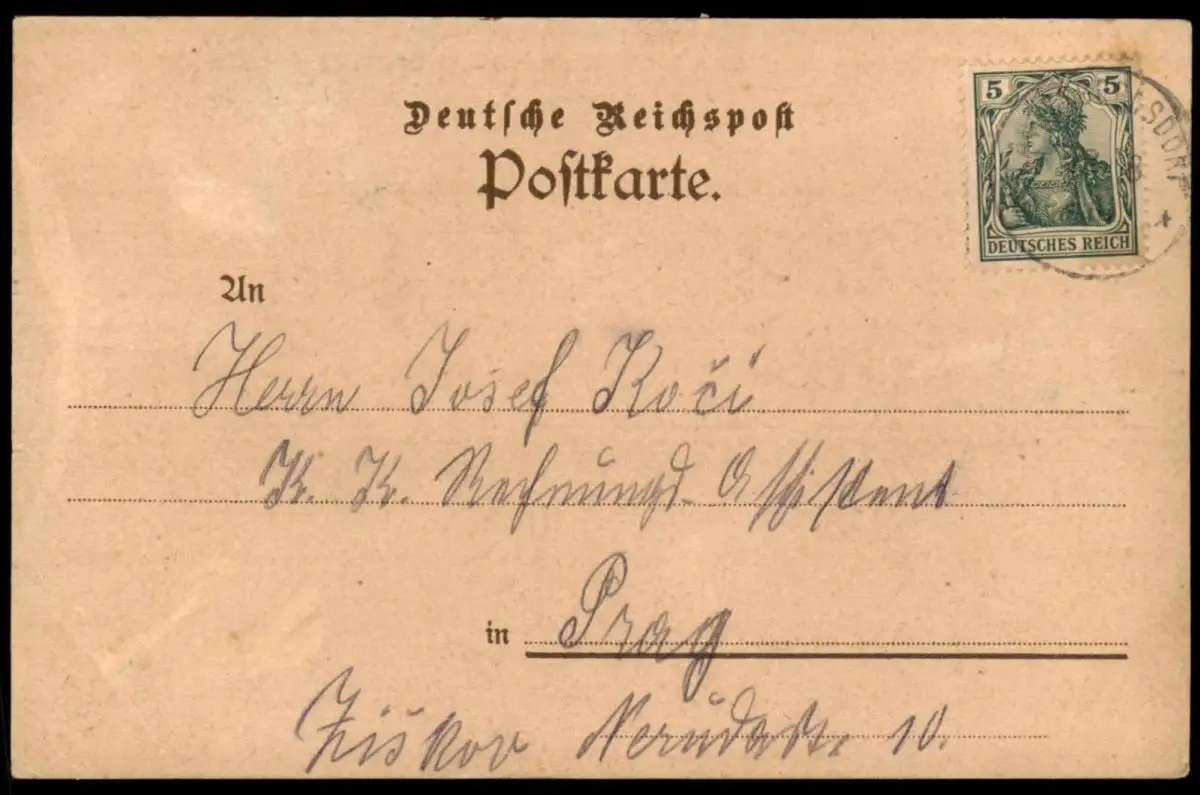 Deutsche Reichspost
Postkarte.
5 5
DEUTSCHES REICH
An
Herrn Josef Kočí
K. K. Rechnungs-Assistent
in Prag
Žižkov Nerudastr. 10.